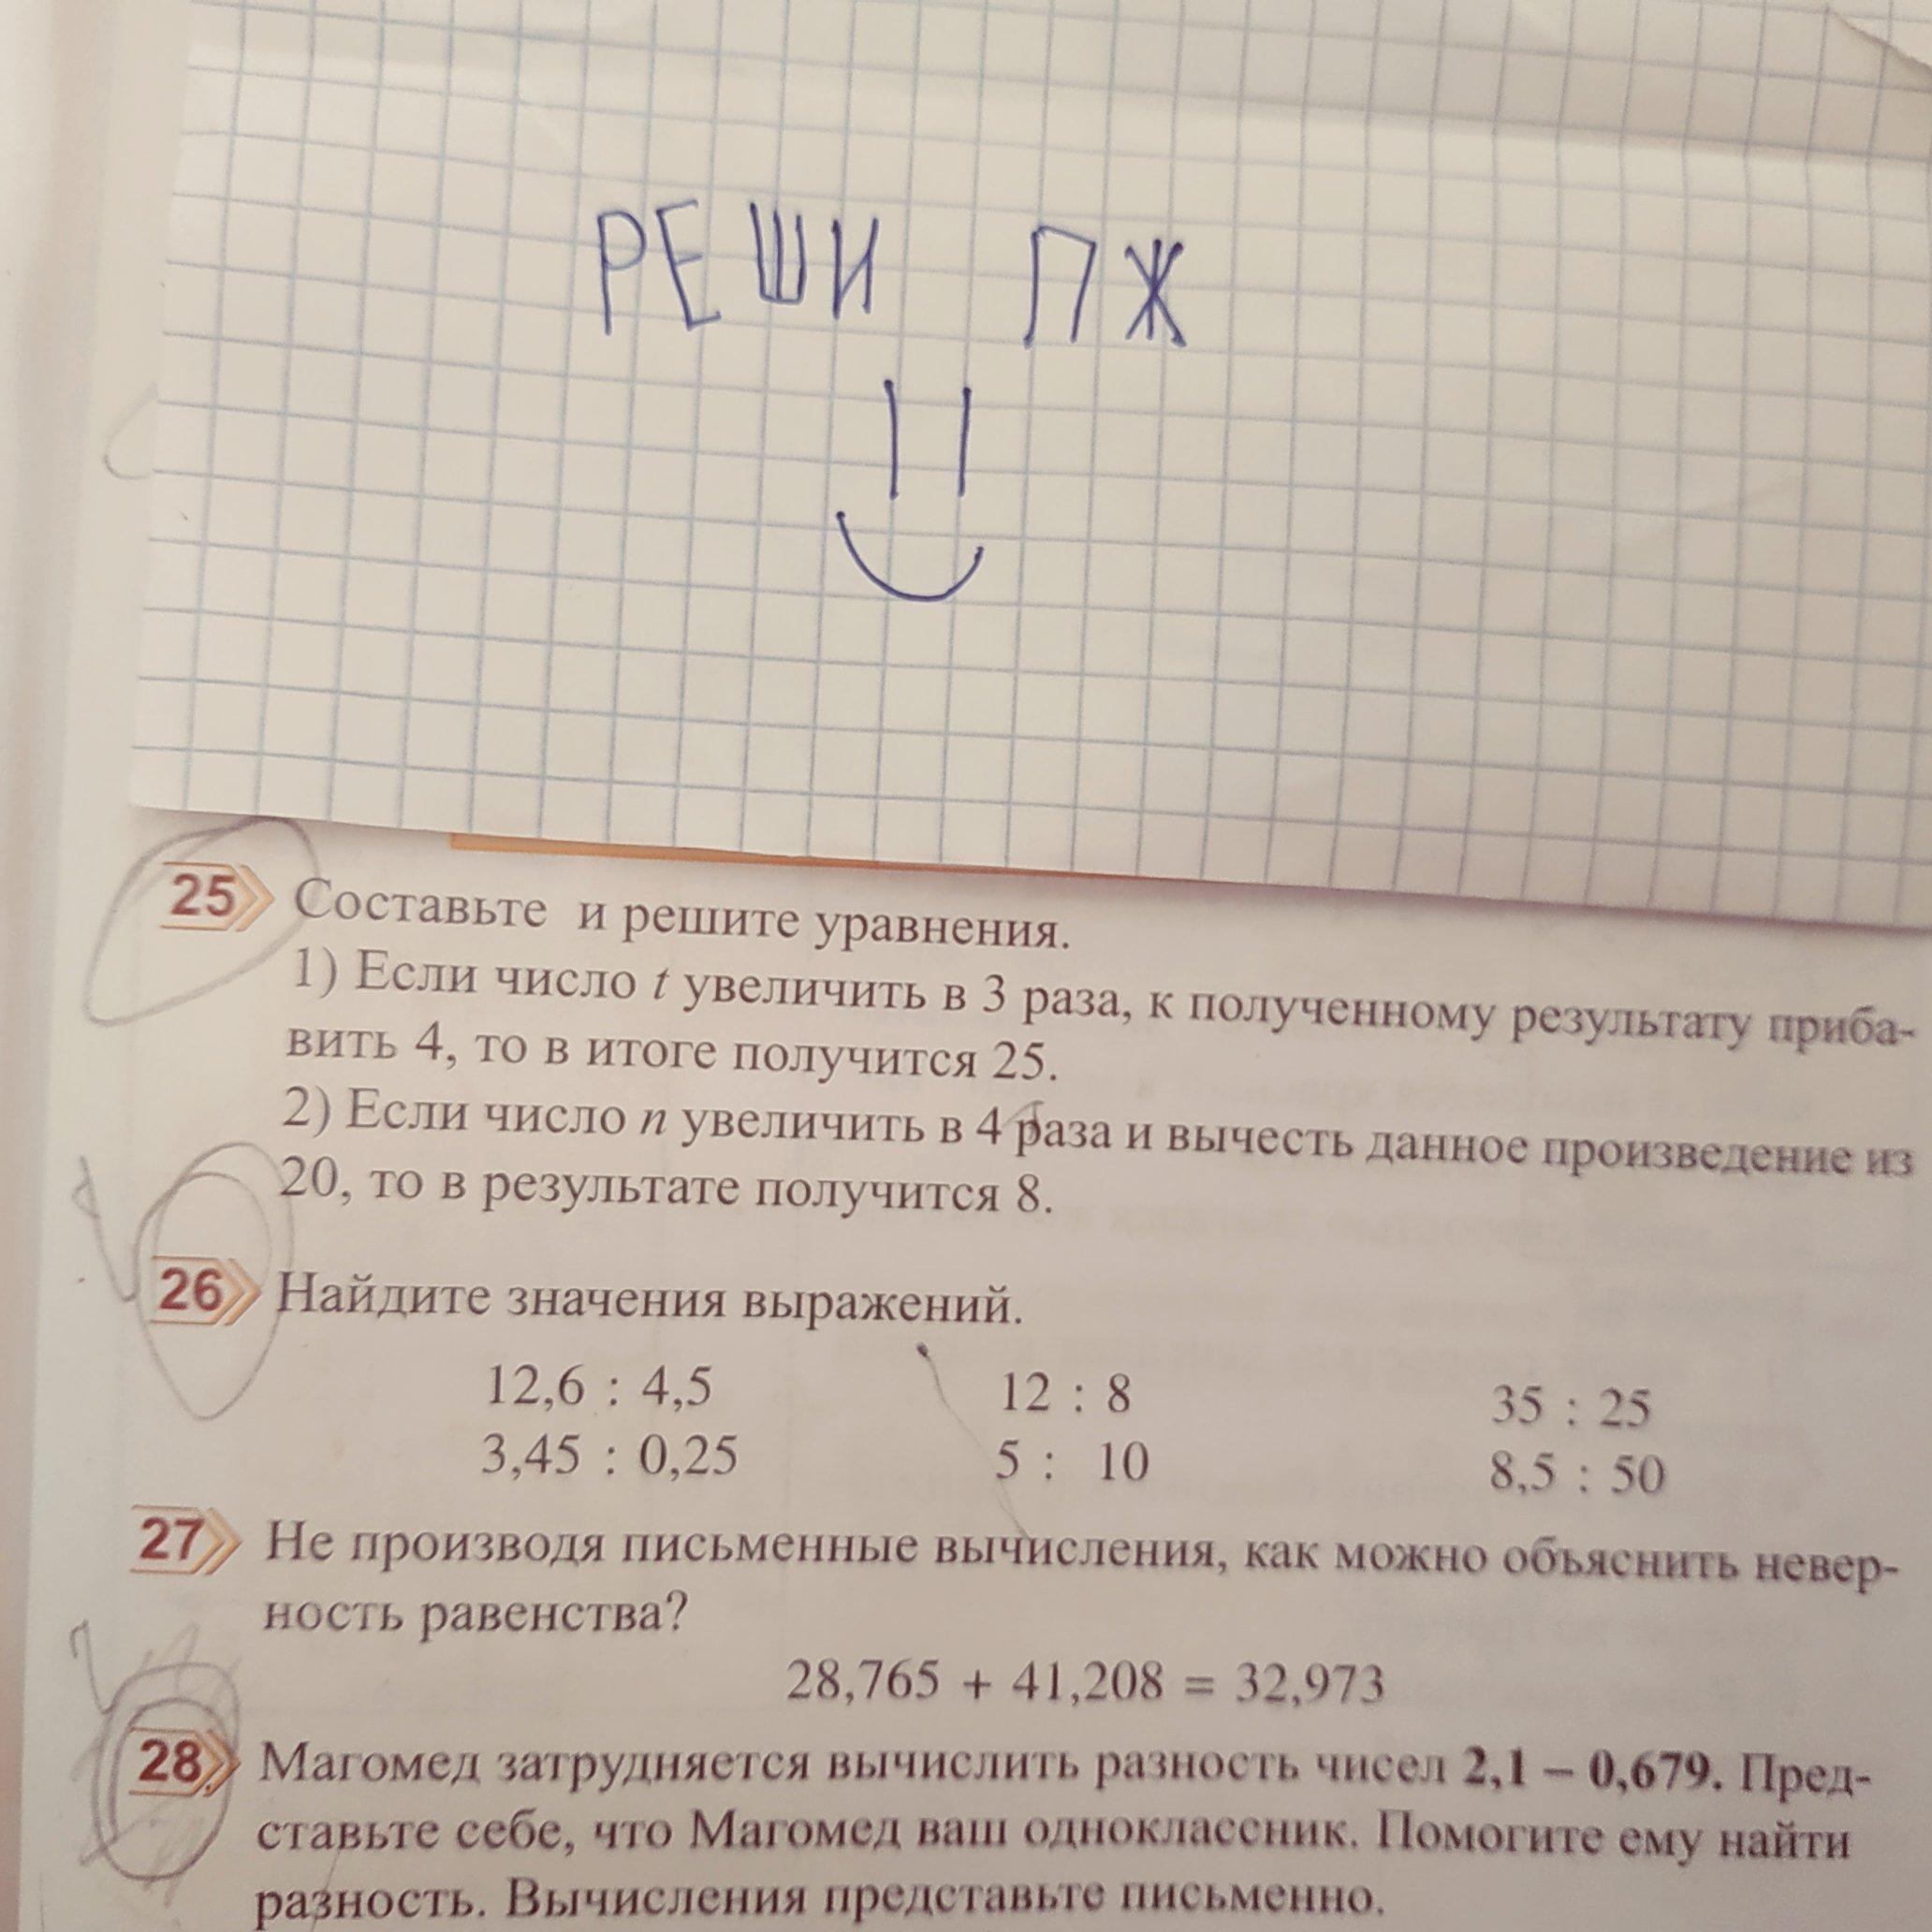 РЕШИ ПЖ
25 Составьте и решите уравнения.
1) Если число t увеличить в 3 раза, к полученному результату приба-
вить 4, то в итоге получится 25.
2) Если число n увеличить в 4 раза и вычесть данное произведение из
20, то в результате получится 8.
26 Найдите значения выражений.
12,6 : 4,5 12 : 8 35 : 25
3,45 : 0,25 5 : 10 8,5 : 50
27 Не производя письменные вычисления, как можно объяснить невер-
ность равенства?
28,765 + 41,208 = 32,973
28 Магомед затрудняется вычислить разность чисел 2,1 – 0,679. Пред-
ставьте себе, что Магомед ваш одноклассник. Помогите ему найти
разность. Вычисления представьте письменно.